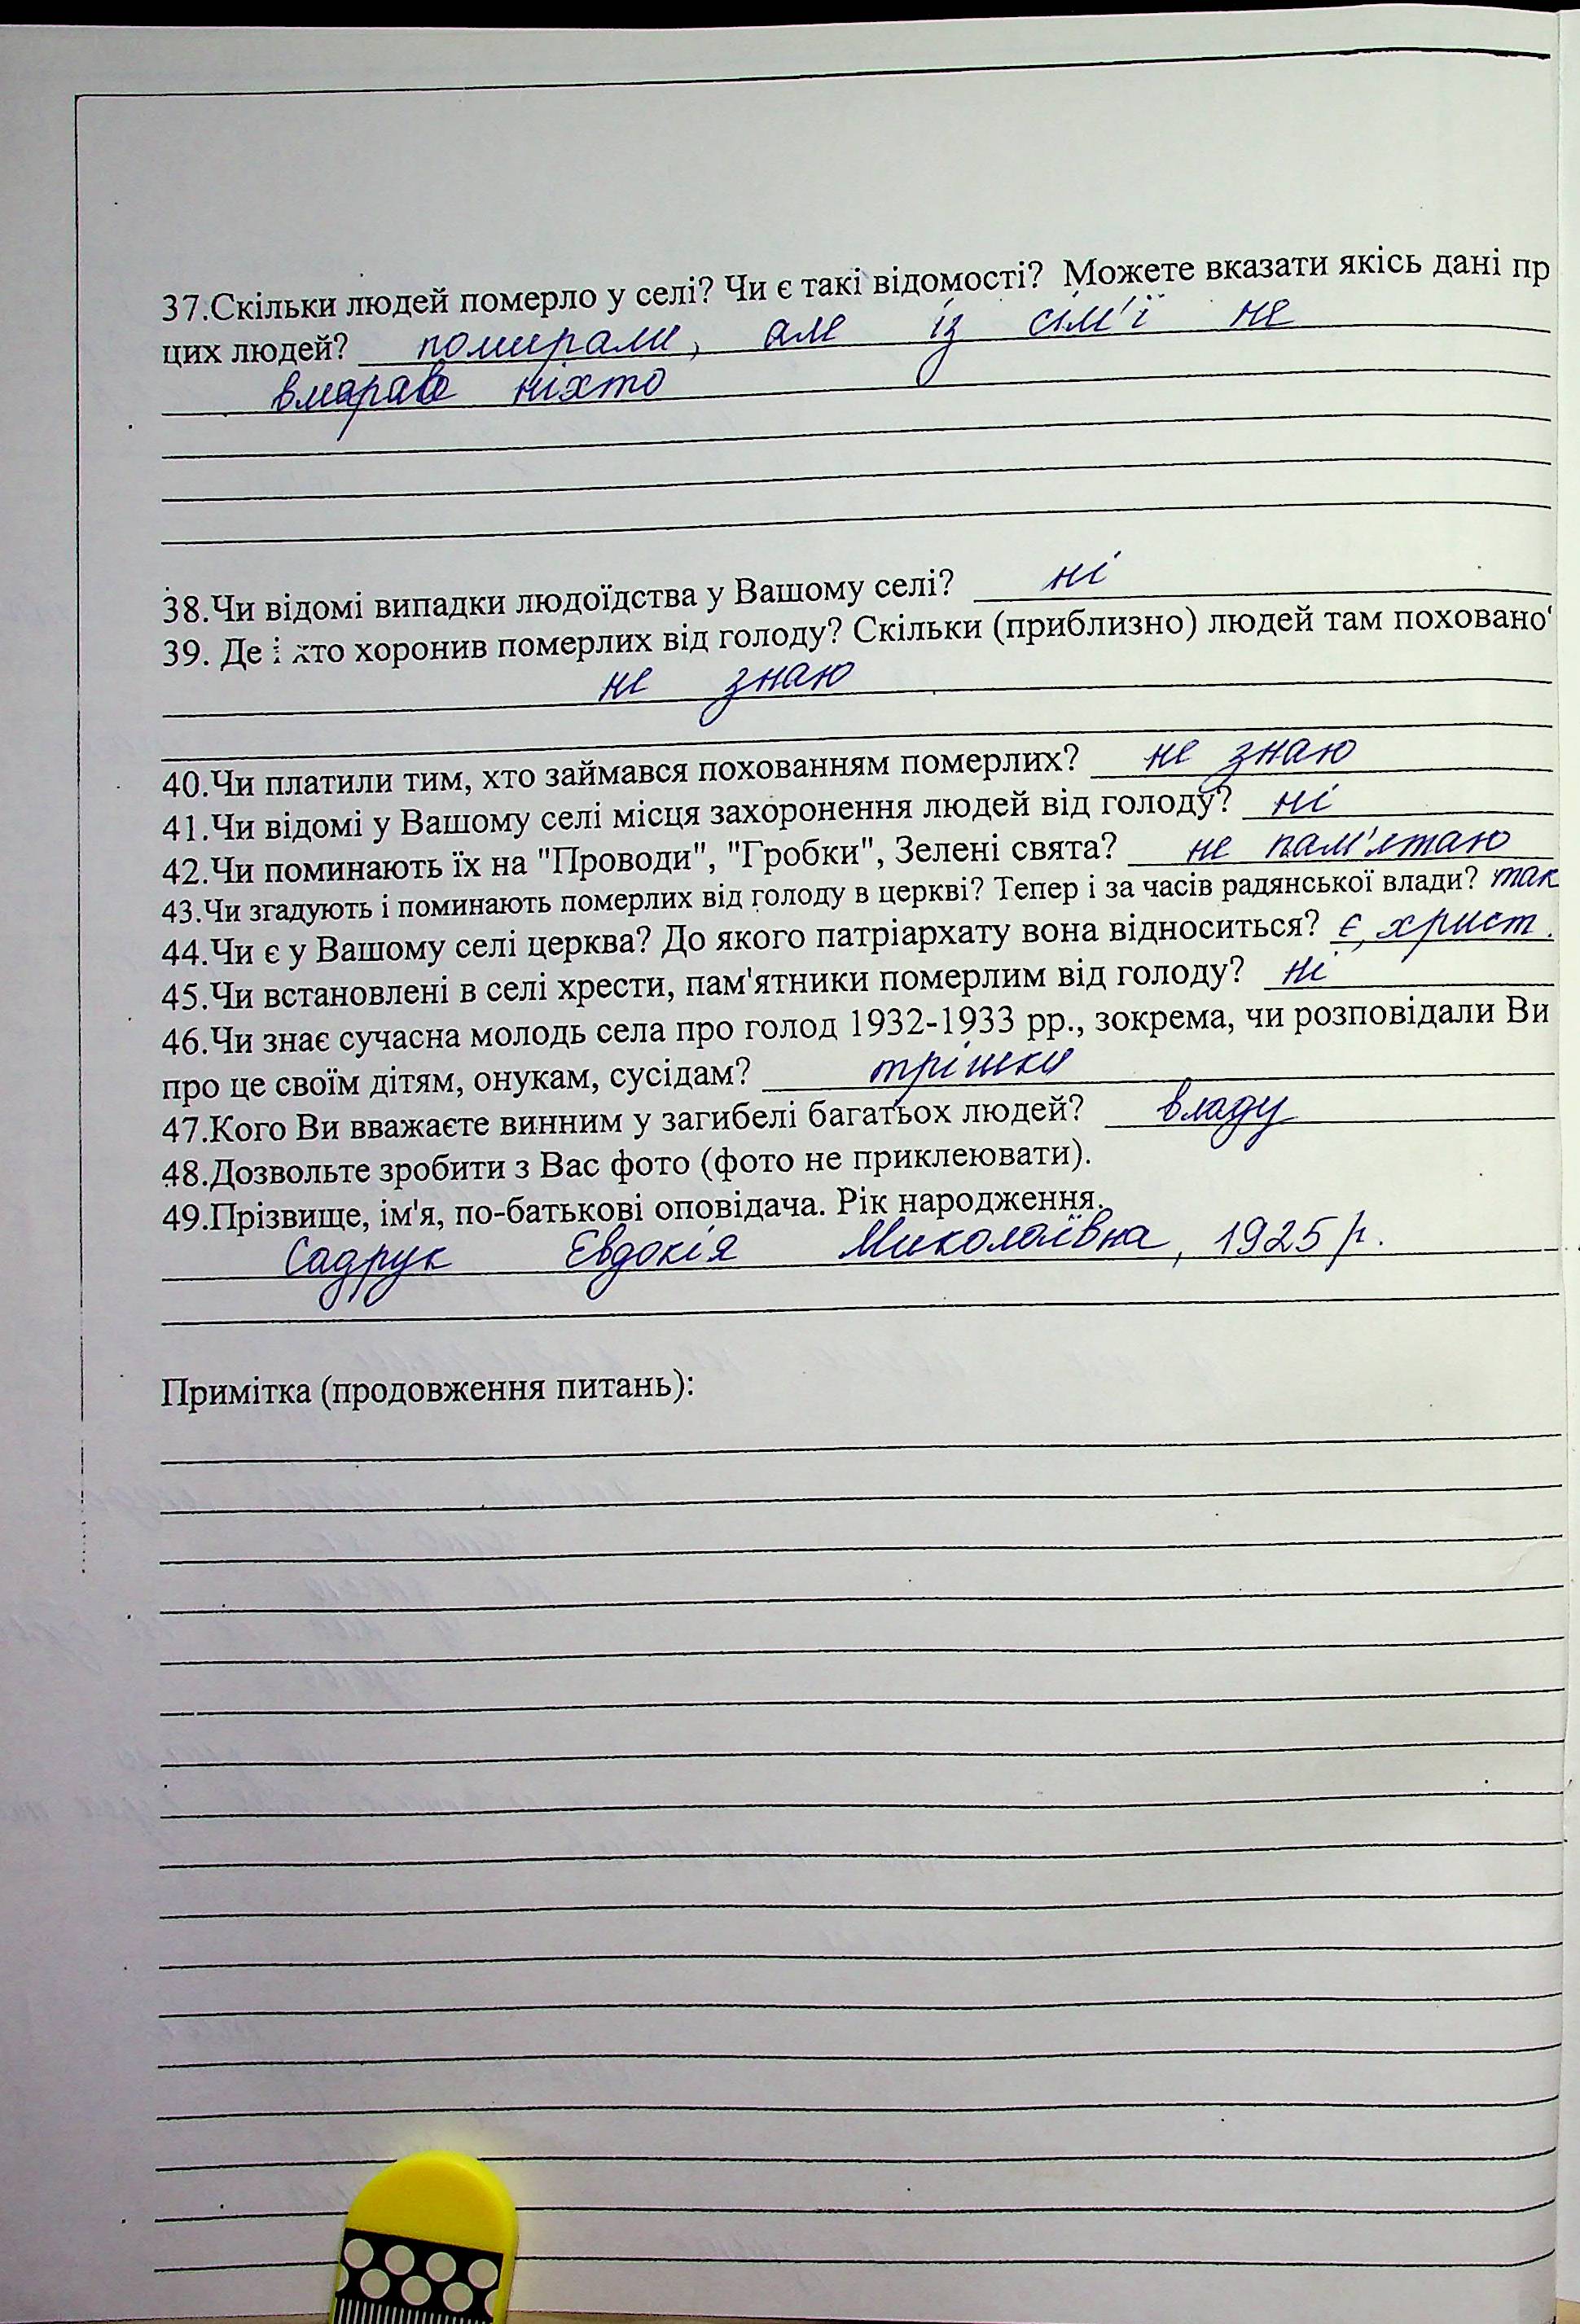 37.Скільки людей померло у селі? Чи є такі відомості? Можете вказати якісь дані пр
цих людей? помирали, але із сім'ї не
вмирав ніхто
38.Чи відомі випадки людоїдства у Вашому селі? ні
39. Де і хто хоронив померлих від голоду? Скільки (приблизно) людей там поховано
не знаю
40.Чи платили тим, хто займався похованням померлих? не знаю
41.Чи відомі у Вашому селі місця захоронення людей від голоду? ні
42.Чи поминають їх на "Проводи", "Гробки", Зелені свята? не пам'ятаю
43.Чи згадують і поминають померлих від голоду в церкві? Тепер і за часів радянської влади? так
44.Чи є у Вашому селі церква? До якого патріархату вона відноситься? є, христ.
45.Чи встановлені в селі хрести, пам'ятники померлим від голоду? ні
46.Чи знає сучасна молодь села про голод 1932-1933 рр., зокрема, чи розповідали Ви
про це своїм дітям, онукам, сусідам? трішки
47.Кого Ви вважаєте винним у загибелі багатьох людей? владу
48.Дозвольте зробити з Вас фото (фото не приклеювати).
49.Прізвище, ім'я, по-батькові оповідача. Рік народження.
Садрук Євдокія Миколаївна, 1925 р.
Примітка (продовження питань):